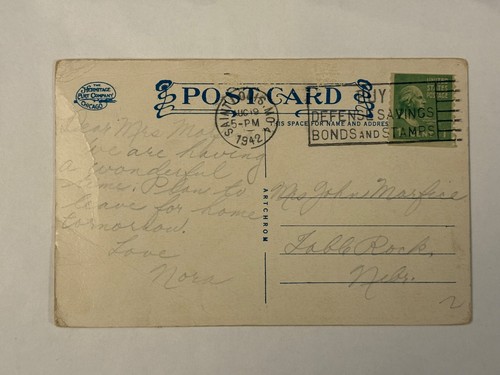 THE
HERMITAGE
ART COMPANY
CHICAGO
POST CARD
THIS SPACE FOR NAME AND ADDRESS
SAINT LOUIS, MO. 4
AUG 19
5-PM
1942
BUY
DEFENSE SAVINGS
BONDS AND STAMPS
UNITED
STATES
Dear Mrs
We are having
a wonderful
time. Plan to
leave for home
tomorrow.
Love
Nora
ARTCHROM
Mrs John
Table Rock,
Nebr.